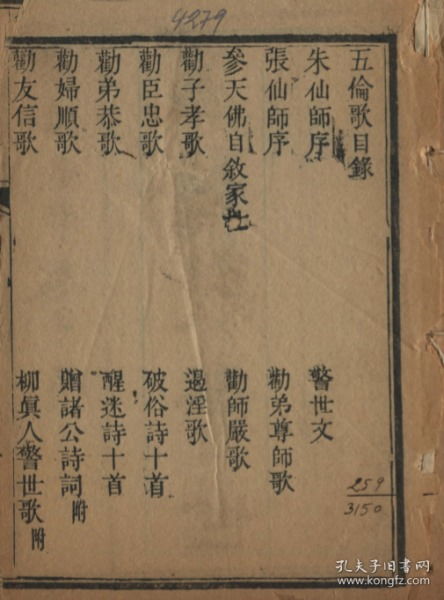 4279
五倫歌目錄
朱仙師序
警世文
張仙師序
勸弟尊師歌
參天佛自敘家世
勸師嚴歌
勸子孝歌
遏淫歌
勸臣忠歌
破俗詩十首
勸弟恭歌
醒迷詩十首
勸婦順歌
贈諸公詩詞附
勸友信歌
柳真人警世歌附
259
3150
孔夫子旧书网
www.kongfz.com